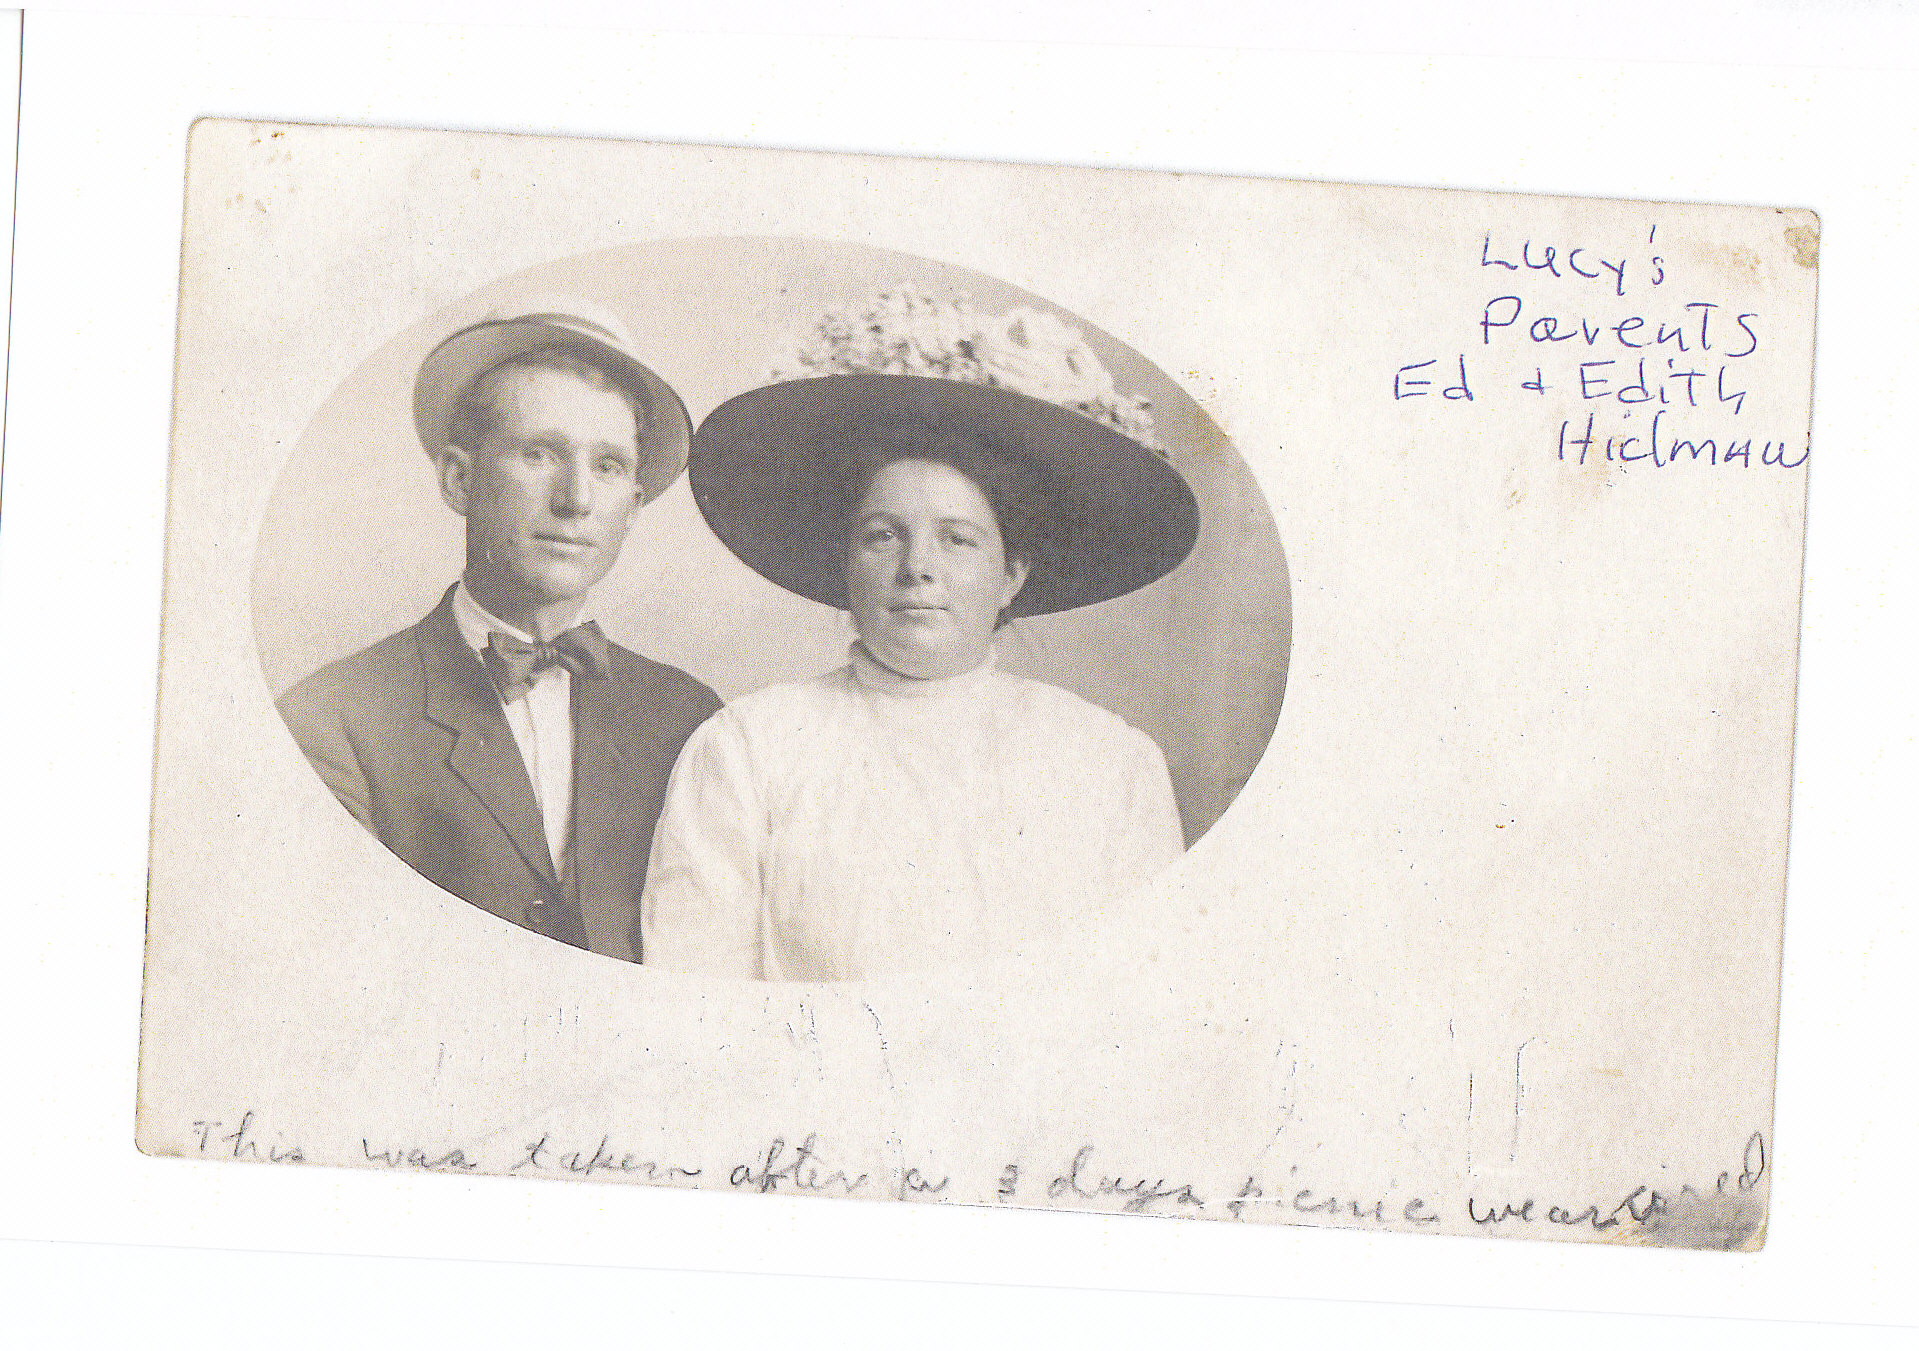 Lucy's
Parents
Ed & Edith
Hidman
This was taken after a 3 days picnic wear